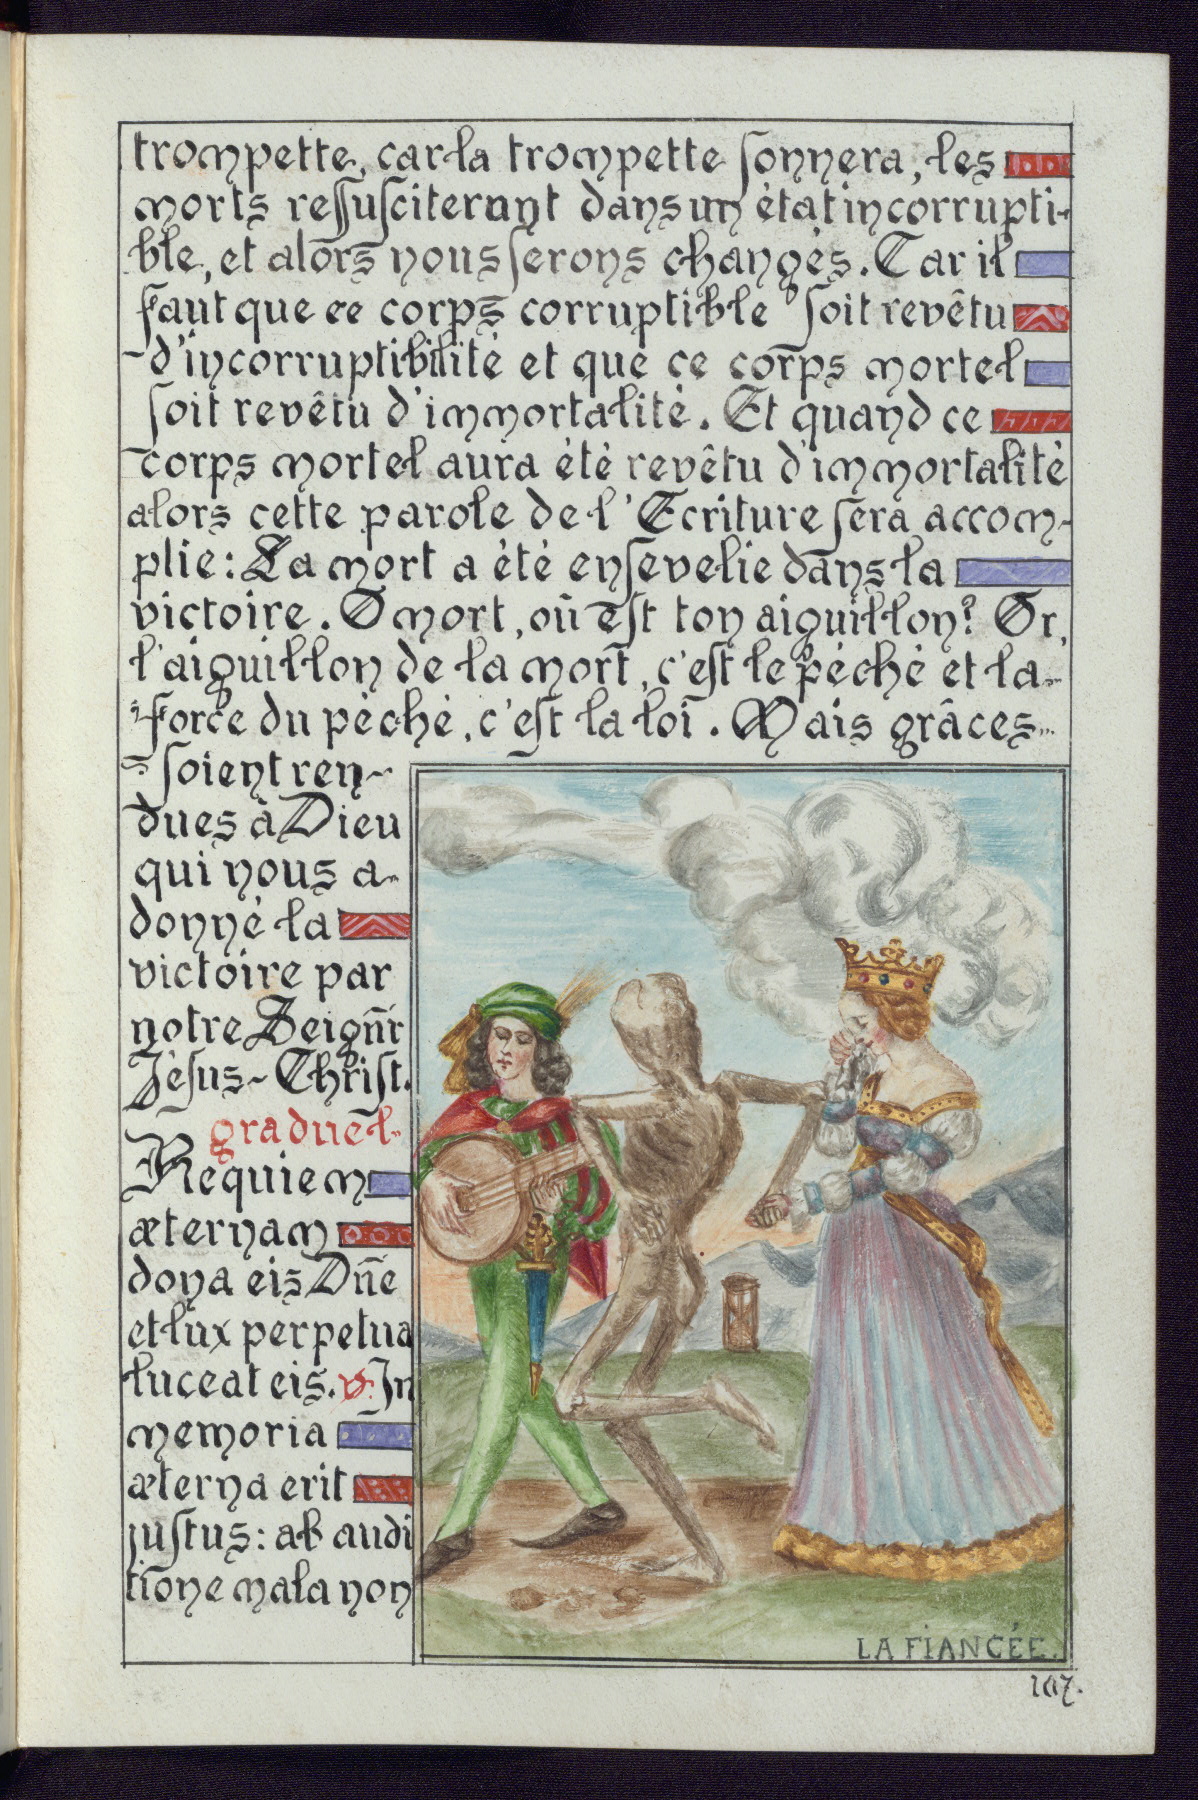 trompette, car la trompette sonnera, les
morts ressusciteront dans un état incorrupti-
ble, et alors nous serons changés. Car il
faut que ce corps corruptible soit revêtu
d'incorruptibilité et que ce corps mortel
soit revêtu d'immortalité. Et quand ce
corps mortel aura été revêtu d'immortalité
alors cette parole de l'Ecriture sera accom-
plie: La mort a été ensevelie dans la
victoire. O mort, où est ton aiguillon? Or,
l'aiguillon de la mort, c'est le péché et la
force du péché, c'est la loi. Mais grâces
soient ren-
dues à Dieu
qui nous a
donné la
victoire par
notre Seignr̃
Jésus-Christ.
graduel
Requiem
æternam
dona eis Dñe
et lux perpetua
luceat eis. ℣. In
memoria
æterna erit
justus: ab audi
tione mala non
LA FIANCÉE.
107.